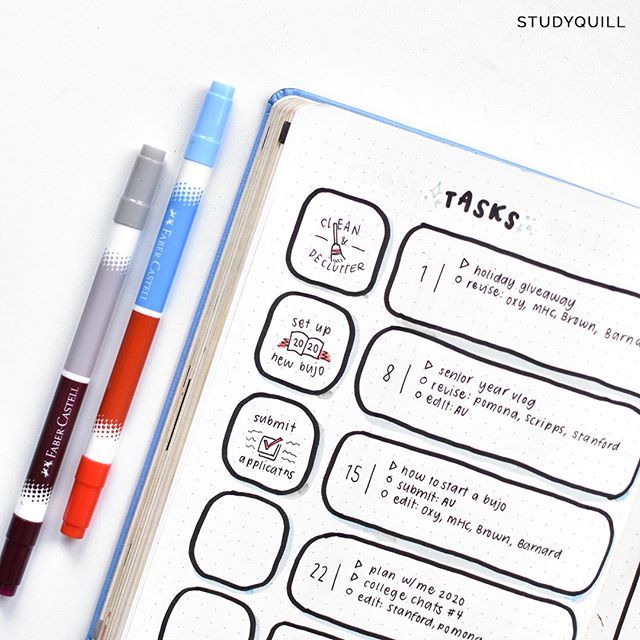 STUDYQUILL
FABER-CASTELL
FABER-CASTELL
TASKS
CLEAN
&
DECLUTTER
1
holiday giveaway
revise: OXY, MHC, Brown, Barnard
set up
2020
new bujo
8
senior year vlog
revise: pomona, scripps, stanford
edit: AU
submit
applicatns
15
how to start a bujo
submit: AU
edit: OXY, MHC, Brown, Barnard
22
plan w/me 2020
college chats #4
edit: stanford, pomona